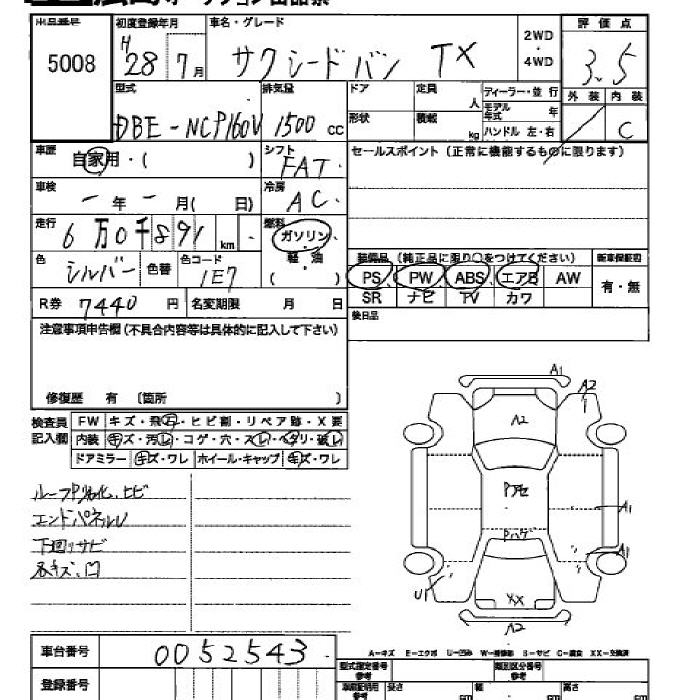 出品番号 初度登録年月 車名・グレード 2WD・4WD 評価点
5008 H28年7月 サクシードバン TX 3.5
型式 排気量 ドア 定員 人 ディーラー・並行 外装 内装
DBE-NCP160V 1500 cc 形状 積載 kg モデル年式 年 ハンドル 左・右 C
車歴 自家用・( ) シフト FAT セールスポイント(正常に機能するものに限ります)
車検 ー年ー月( 日) 冷房 AC
走行 6万0千891km 燃料 ガソリン・軽油 ( )
色 シルバー 色替 色コード 1E7
装備品(純正品に限り○をつけてください) 新車保証書
PS PW ABS エアB AW 有・無
R券 7440円 名変期限 月 日 SR ナビ TV カワ
注意事項申告欄(不具合内容等は具体的に記入して下さい) 後日品
修復歴 有 〔箇所 〕
検査員記入欄 FW キズ・飛石・ヒビ割・リペア跡・X要
内装 キズ・汚レ・コゲ・穴・スレ・ヘタリ・破レ
ドアミラー キズ・ワレ ホイール・キャップ キズ・ワレ
A1
A2
A2
A1
A1
U1
XX
A2
エンドパネルU
下回りサビ
各キズ、凹
A=キズ E=エクボ U=凹み W=補修跡 S=サビ C=腐食 XX=交換済
車台番号 0052543
型式指定番号 参考 類別区分番号 参考
登録番号 車庫証明用 参考 長さ cm 幅 cm 高さ cm